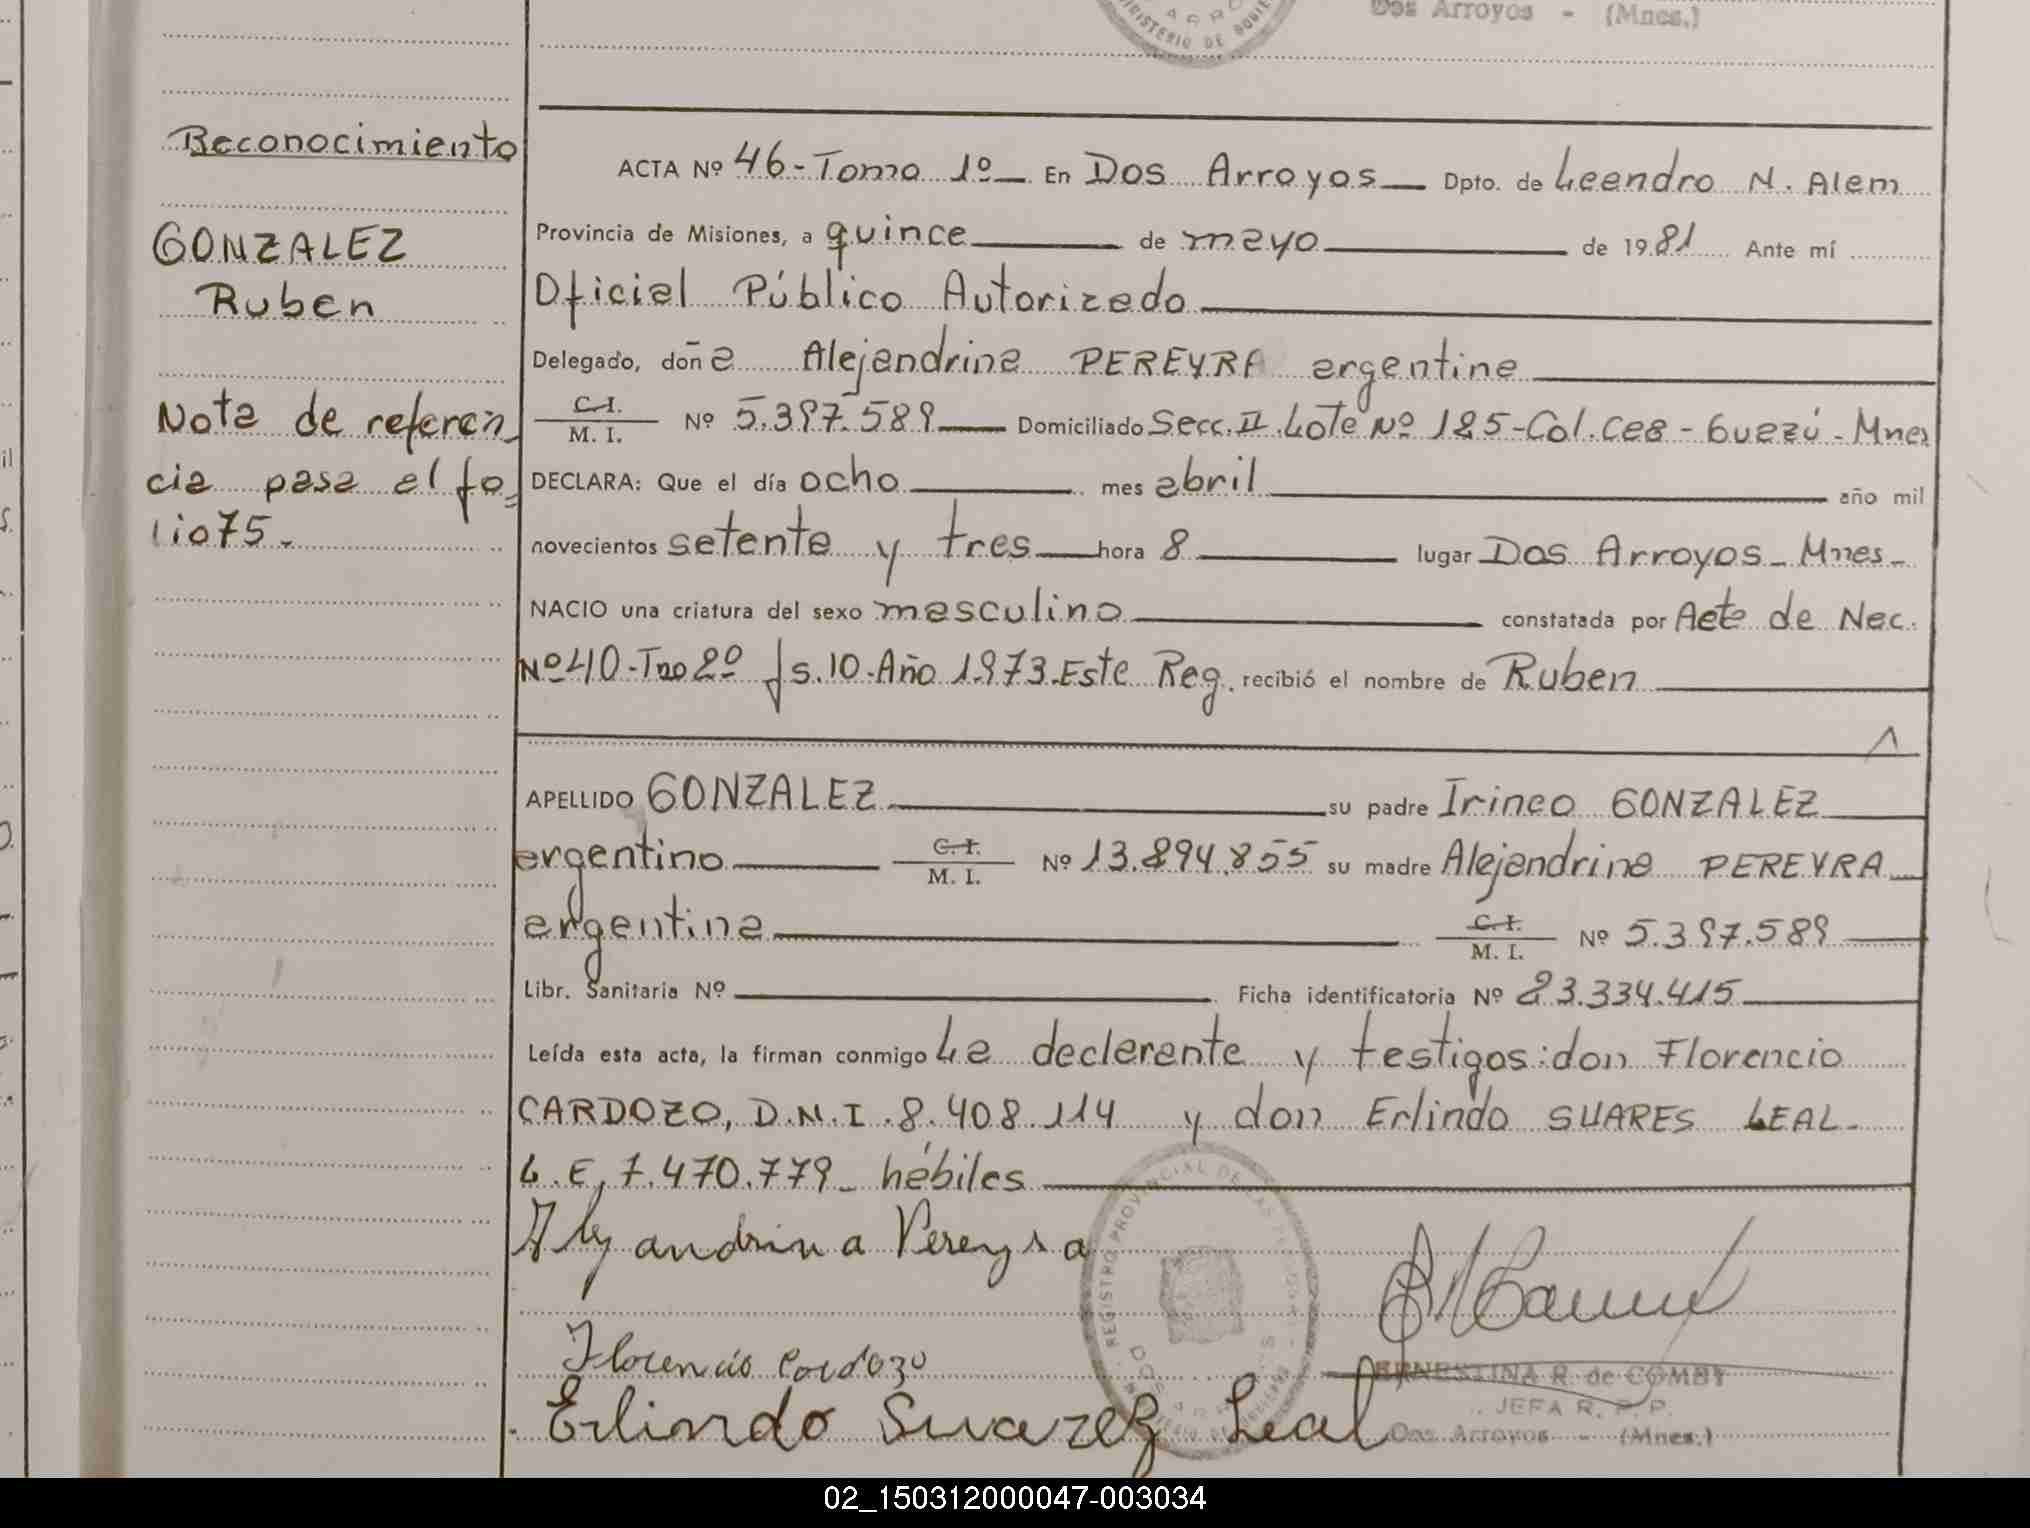 Dos Arroyos - (Mnes.)
Reconocimiento
GONZALEZ
Ruben
Nota de referen
cia pasa al fo
lio 75.-
ACTA Nº 46-Tomo 1º En Dos Arroyos Dpto. de Leandro N. Alem
Provincia de Misiones, a quince de mayo de 1981 Ante mí
Oficial Público Autorizado
Delegado, doña Alejandrina PEREYRA argentina
C.I. / M. I. Nº 5.397.589 Domiciliado Secc. II Lote Nº 125-Col. Caa-Guazú-Mnes
DECLARA: Que el día ocho mes abril año mil
novecientos setenta y tres hora 8 lugar Dos Arroyos-Mnes-
NACIO una criatura del sexo masculino constatada por Acta de Nac.
Nº 40-Tmo 2º fs. 10-Año 1973-Este Reg. recibió el nombre de Ruben
APELLIDO GONZALEZ su padre Irineo GONZALEZ
argentino C.I. / M. I. Nº 13.894.855 su madre Alejandrina PEREYRA
argentina C.I. / M. I. Nº 5.397.589
Libr. Sanitaria Nº Ficha identificatoria Nº 23.334.415
Leída esta acta, la firman conmigo La declarante y testigos: don Florencio
CARDOZO, D.N.I. 8.408.114 y don Erlindo SUARES LEAL-
L.E. 7.470.779- hábiles
Alejandrina Pereyra
Florencio Cardozo
Erlindo Suarez Leal
REGISTRO PROVINCIAL DE LAS PERSONAS
ERNESTINA R. de COMBY
JEFA R. P. P.
Dos Arroyos - (Mnes.)
02_150312000047-003034